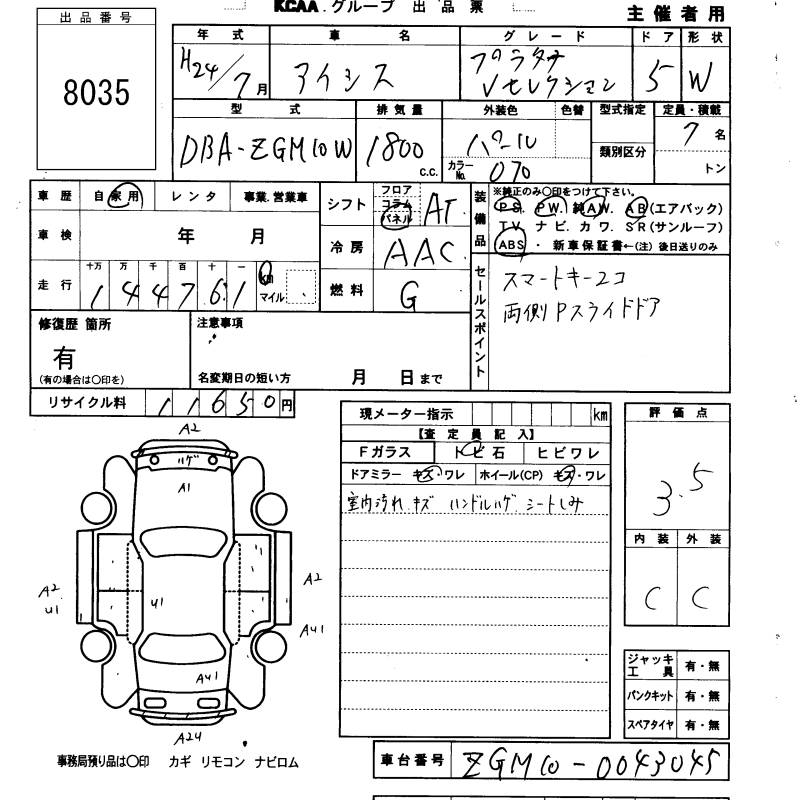 KCAA グループ 出品票
主催者用
出品番号
8035
年式 車名 グレード ドア 形状
H24/7月 アイシス プラタナ Vセレクション 5 W
型式 排気量 外装色 色替 型式指定 定員・積載
DBA-ZGM10W 1800 c.c. パール 7名
カラーNo. 070 類別区分 トン
車歴 自家用 レンタ 事業.営業車
シフト フロア コラム パネル AT
装備品 ※純正のみ〇印をつけて下さい。
PS. PW. 純AW. AB(エアバック)
TV ナビ.カワ.SR(サンルーフ)
ABS ・ 新車保証書←(注)後日送りのみ
車検 年 月
冷房 AAC
走行 十万 万 千 百 十 一
144761 km マイル
燃料 G
セールスポイント
スマートキー2コ
両側Pスライドドア
修復歴 箇所
有
(有の場合は〇印を)
注意事項
名変期日の短い方 月 日まで
リサイクル料 11650円
現メーター指示 km
【査定員記入】
Fガラス トビ石 ヒビワレ
ドアミラー キズ・ワレ ホイール(CP) キズ・ワレ
室内汚れ キズ ハンドルハゲ シートしみ
評価点
3.5
内装 外装
C C
A2
ハゲ
A1
A2
U1
U1
A2
AU1
AU1
A24
ジャッキ工具 有・無
パンクキット 有・無
スペアタイヤ 有・無
事務局預り品は〇印 カギ リモコン ナビロム
車台番号 ZGM10-0043045